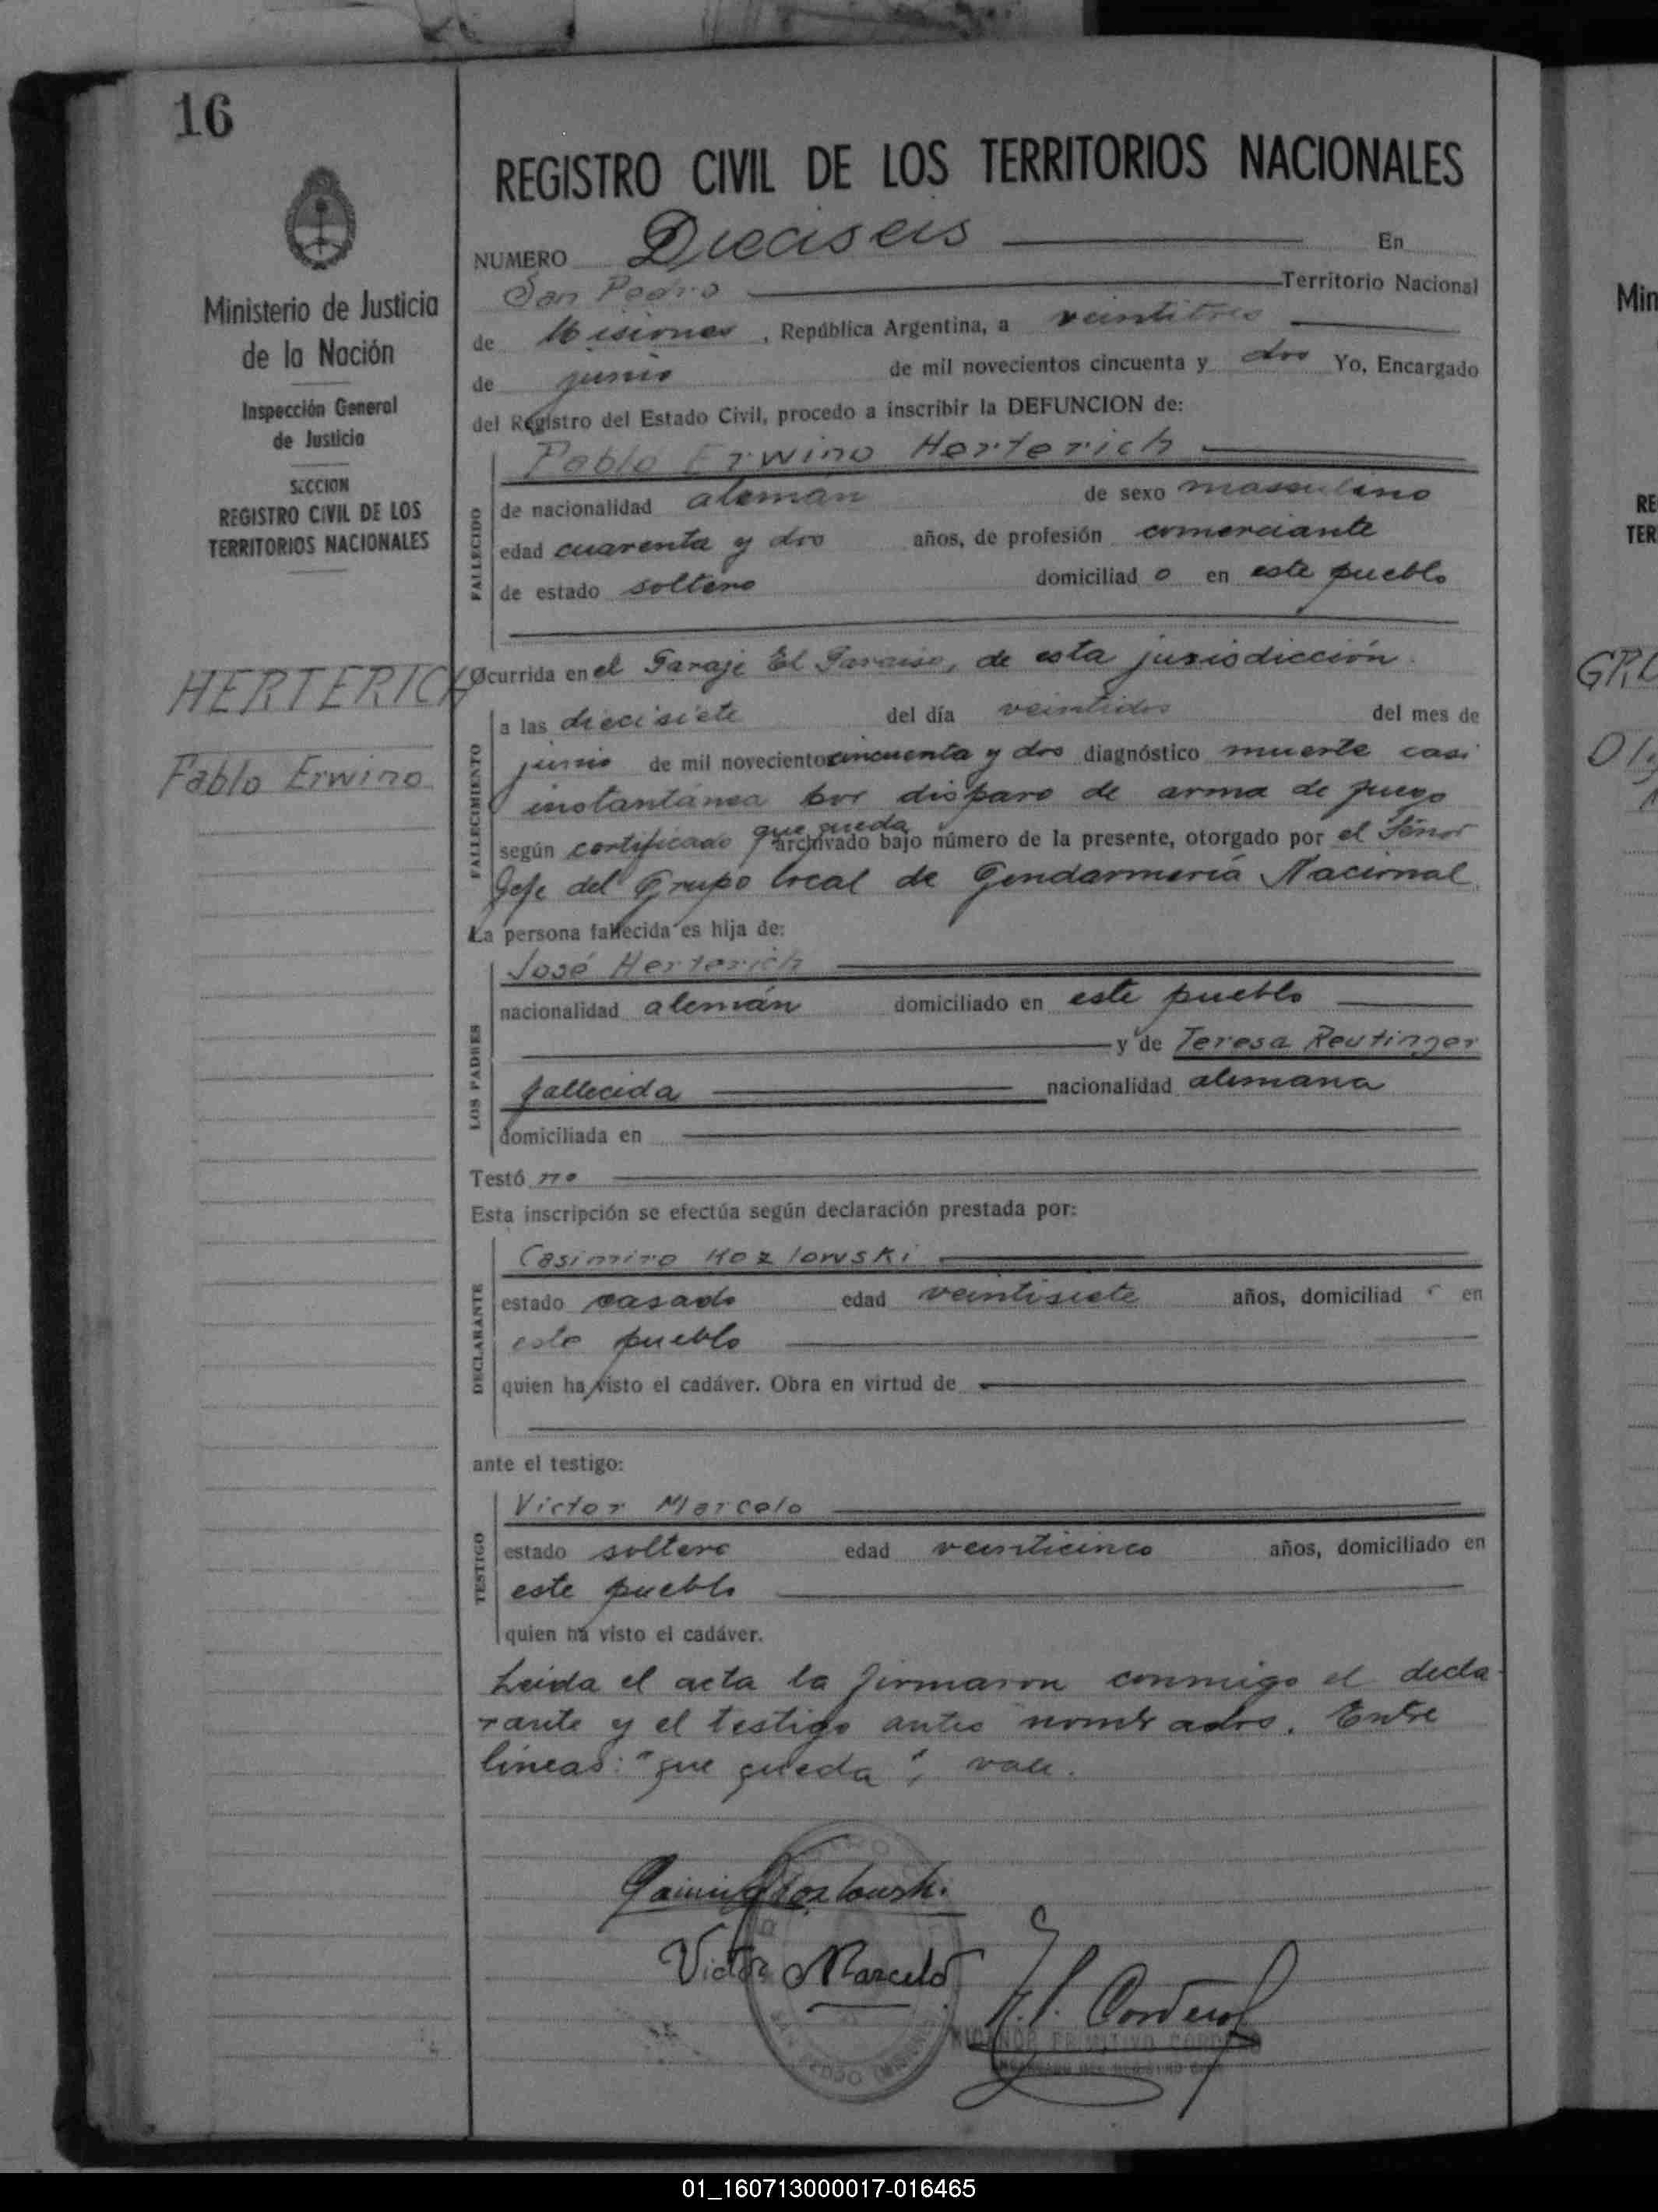 16
Ministerio de Justicia
de la Nación
Inspección General
de Justicia
SECCION
REGISTRO CIVIL DE LOS
TERRITORIOS NACIONALES
HERTERICH
Pablo Erwino
REGISTRO CIVIL DE LOS TERRITORIOS NACIONALES
NUMERO Dieciseis En
San Pedro Territorio Nacional
de Misiones, República Argentina, a veintitres
de junio de mil novecientos cincuenta y dos Yo, Encargado
del Registro del Estado Civil, procedo a inscribir la DEFUNCION de:
Pablo Erwino Herterich
FALLECIDO
de nacionalidad alemán de sexo masculino
edad cuarenta y dos años, de profesión comerciante
de estado soltero domiciliad o en este pueblo
Ocurrida en el Paraje El Paraiso, de esta jurisdicción.
FALLECIMIENTO
a las diecisiete del día veintidos del mes de
junio de mil novecientos cincuenta y dos diagnóstico muerte casi
instantánea por disparo de arma de fuego
según certificado que queda archivado bajo número de la presente, otorgado por el Señor
Jefe del Grupo local de Gendarmería Nacional
La persona fallecida es hija de:
LOS PADRES
José Herterich
nacionalidad alemán domiciliado en este pueblo
y de Teresa Reutinger
fallecida nacionalidad alemana
domiciliada en
Testó no
Esta inscripción se efectúa según declaración prestada por:
DECLARANTE
Casimiro Kozlowski
estado casado edad veintisiete años, domiciliad o en
este pueblo
quien ha visto el cadáver. Obra en virtud de
ante el testigo:
TESTIGO
Victor Marcelo
estado soltero edad veinticinco años, domiciliado en
este pueblo
quien ha visto el cadáver.
Leida el acta la firmaron conmigo el decla-
rante y el testigo antes nombrados. Entre
lineas: "que queda", vale.
Kozlowski
Victor Marcelo
N. P. Cordero
NICANOR PRIMITIVO CORDERO
ENCARGADO DEL REGISTRO CIVIL
SAN PEDRO (MISIONES)
Min
RE
TER
01_160713000017-016465